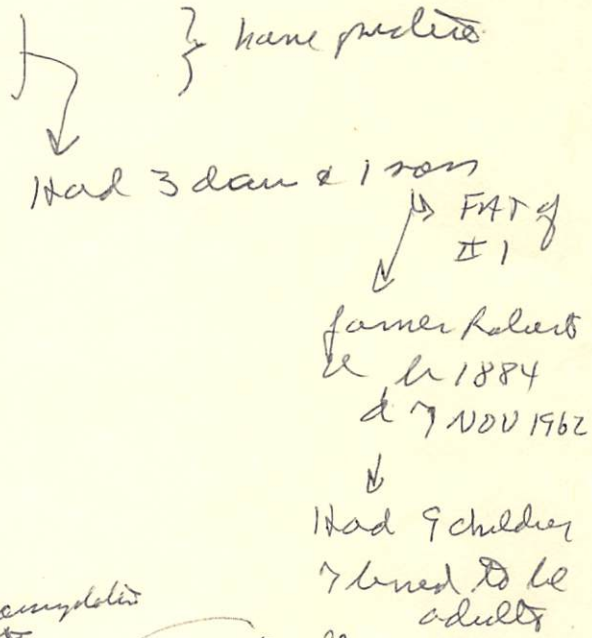 } have
Had 3 dau & 1 son
FAT of
II 1
James Robert
b 1884
d 7 NOV 1962
Had 9 children
7 lived to be
adults